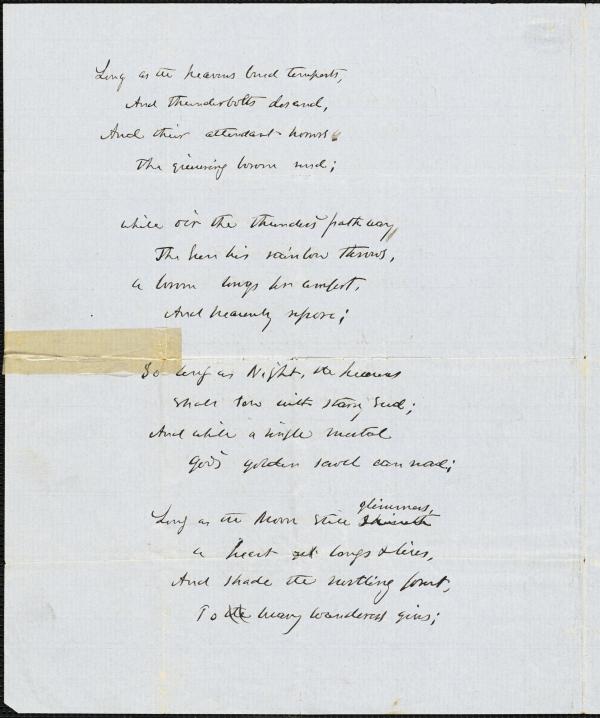 Long as the heavens breed tempests,
And thunderbolts descend,
And their attendant horrors
The quivering bosom rend;
While o'er the thunder's pathway
The Sun his rainbow throws,
a bosom longs for comfort,
And heavenly repose;
So long as Night, the heavens
Shall sow with starry Seed;
And while a single mortal
God's golden scroll can read;
Long as the Moon still shineth glimmers,
a heart yet longs & lives,
And shade the rustling forest,
To the weary wanderers gives;